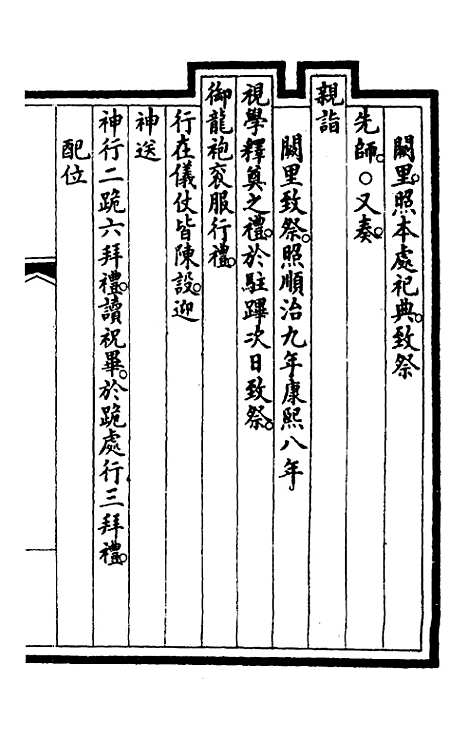 闕里。照本處祀典。致祭
先師。○又奏。
親詣
闕里致祭。照順治九年康熙八年
視學釋奠之禮。於駐蹕次日致祭。
御龍袍袞服行禮。
行在儀仗皆陳設。迎
神送
神行二跪六拜禮。讀祝畢。於跪處行三拜禮。
配位